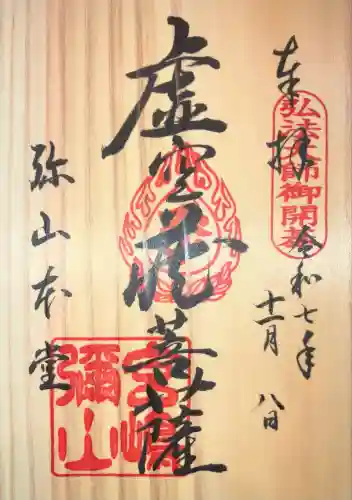 奉拝
弘法大師御開基
令和七年
十一月 八日
虚空蔵菩薩
宮嶋
彌山
弥山本堂